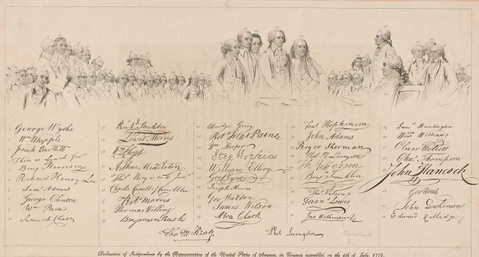 George Wythe
Wm Whipple
Josiah Bartlett
Benj Harrison
Richard Henry Lee
Saml Adams
George Clinton
Wm Paca
Samuel Chase
Richd Stockton
Lewis Morris
Arthur Middleton
Charles Carroll of Carrollton
Robt Morris
Thomas Willing
Benjamin Rush
Elbridge Gerry
Robt Treat Paine
Wm Hooper
William Ellery
Joseph Hewes
Geo Walton
James Wilson
Abra Clark
Step Hopkins
John Adams
Roger Sherman
Th Jefferson
Benj Franklin
Thos Nelson jr
Frans Lewis
Jno Witherspoon
Saml Huntington
Wm Williams
Oliver Wolcott
Chas Thomson
John Hancock
Geo Read
John Dickinson
Edward Rutledge
Phil Livingston
Declaration of Independence by the Representatives of the United States of America, in Congress assembled, on the 4th of July, 1776.